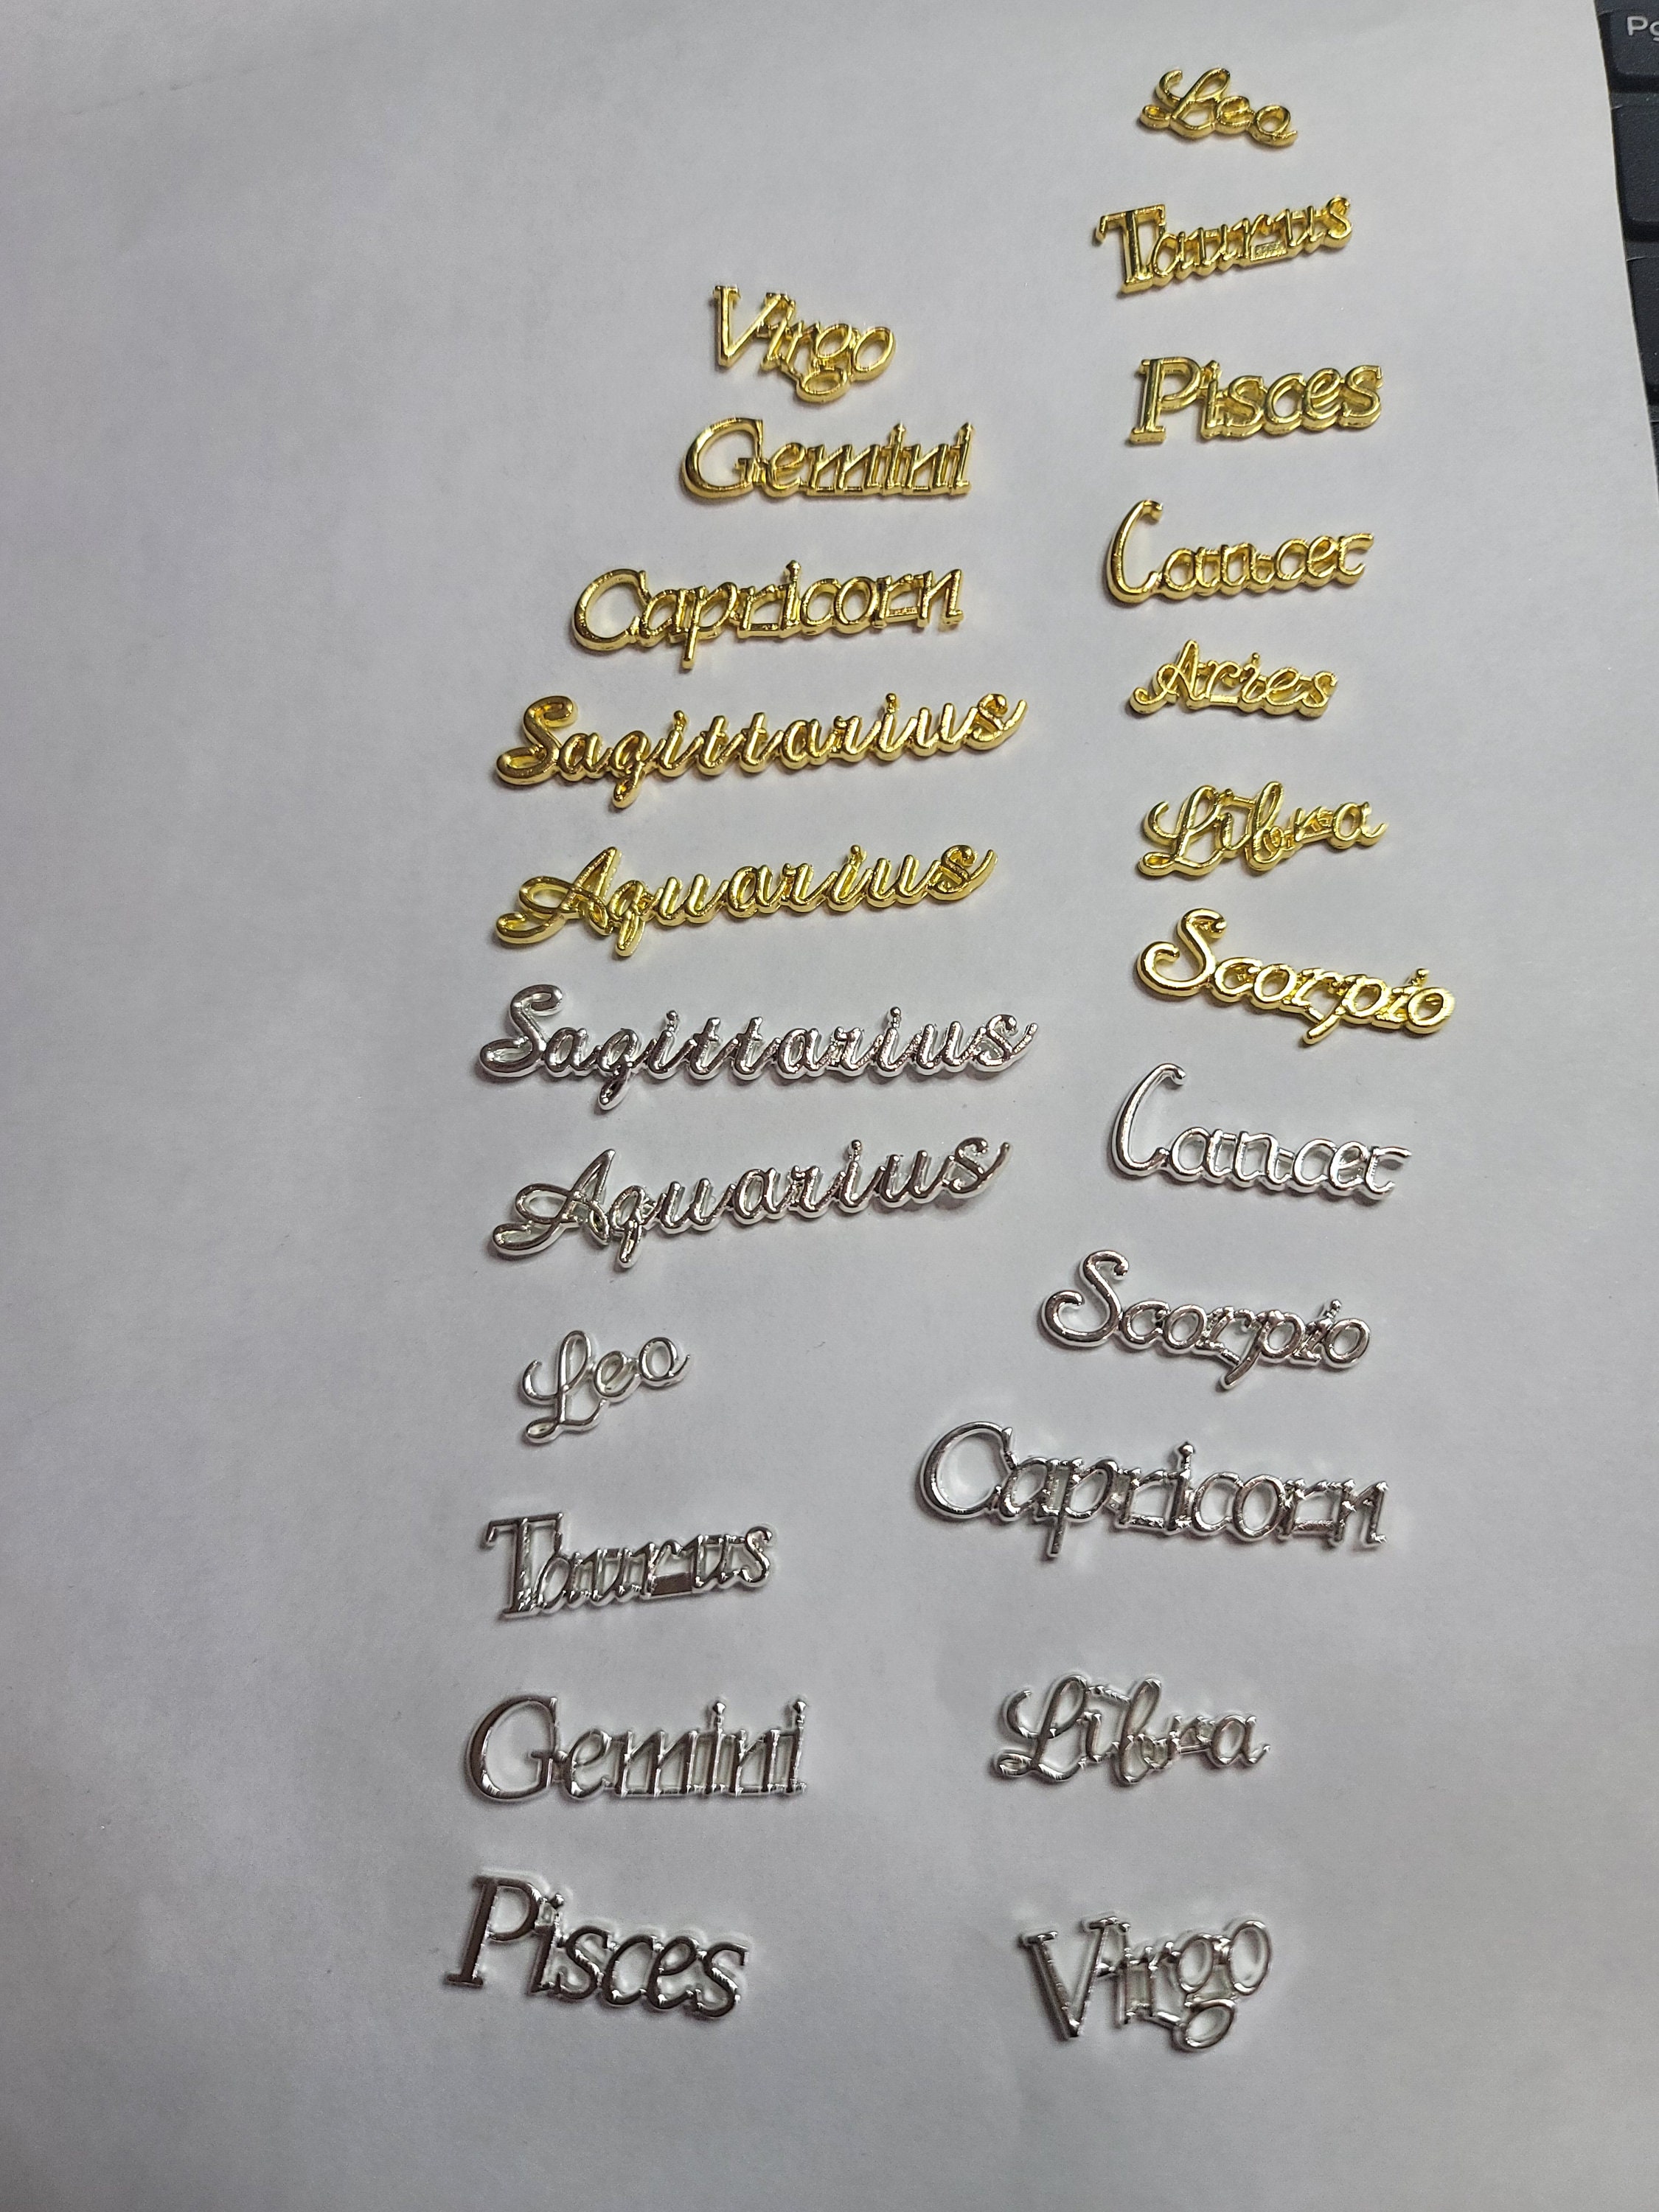 Leo
Taurus
Virgo
Pisces
Gemini
Cancer
Capricorn
Aries
Sagittarius
Libra
Aquarius
Scorpio
Sagittarius
Cancer
Aquarius
Scorpio
Leo
Capricorn
Taurus
Libra
Gemini
Pisces
Virgo